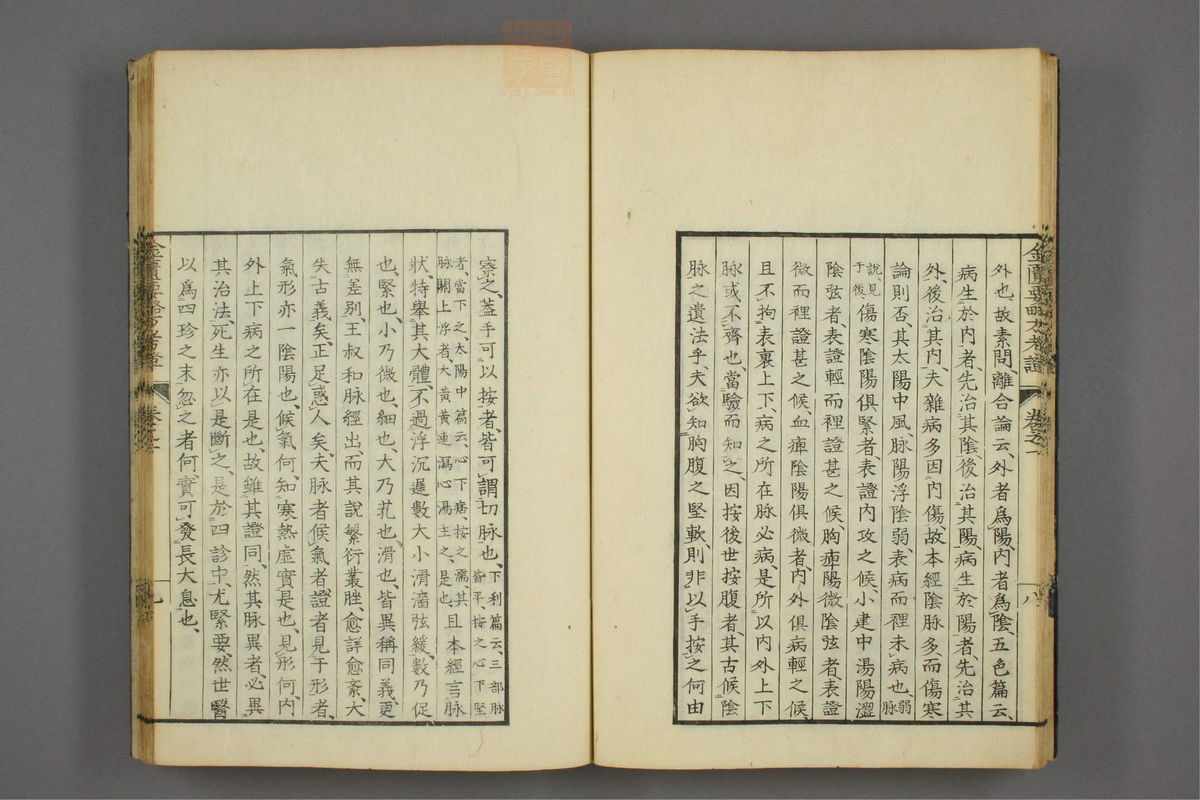 外也、故素問、離合論云、外者爲陽、内者爲陰、五色篇云、
病生於内者、先治其陰、後治其陽、病生於陽者、先治其
外、後治其内、夫雜病多因内傷、故本經陰脉多、而傷寒
論則否、其太陽中風、脉陽浮陰弱、表病而裡未病也、弱脉
説見于後傷寒陰陽俱緊者、表證内攻之候、小建中湯陽澀
陰弦者、表證輕而裡證甚之候、胸痺陽微陰弦者、表證
微而裡證甚之候、血痺陰陽俱微者、内外俱病輕之候、
且不拘表裏上下、病之所在脉必病、是所以内外上下
脉或不齊也、當驗而知之、因按後世按腹者、其古候陰
脉之遺法乎、夫欲知胸腹之堅軟、則非以手按之何由
察之、蓋手可以按者、皆可謂切脉也、下利篇云、三部脉皆平、按之心下堅
者、當下之、太陽中篇云、心下痞、按之濡、其脉關上浮者、大黄黄連瀉心湯主之、是也、且本經言脉
狀、特舉其大體、不過浮沉遲數大小滑濇弦緩、數乃促
也、緊也、小乃微也、細也、大乃芤也、滑也、皆異稱同義、更
無差别、王叔和脉經出、而其説繁衍叢脞、愈詳愈紊、大
失古義矣、正足惑人矣、夫脉者候氣者證者見于形者、
氣形亦一陰陽也、候氣何、知寒熱虚實是也、見形何、内
外上下病之所在是也、故雖其證同、然其脉異者、必異
其治法、死生亦以是斷之、是於四診中、尤緊要、然世醫
以爲四珍之末、忽之者何、實可發長大息也、
金匱要略方考證
卷之一
八
九